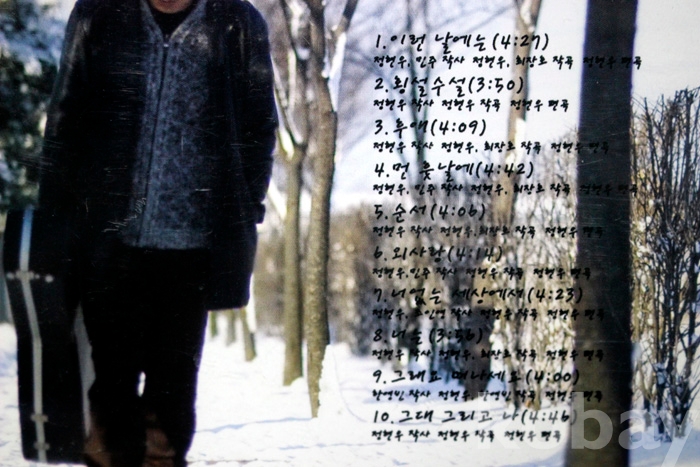 1. 이런 날에는(4:27)
정현우, 민주 작사 정현우, 최장호 작곡 정현우 편곡
2. 횡설수설(3:50)
정현우 작사 정현우 작곡 정현우 편곡
3. 후애(4:09)
정현우 작사 정현우, 최장호 작곡 정현우 편곡
4. 먼 훗날에(4:42)
정현우, 민주 작사 정현우, 최장호 작곡 정현우 편곡
5. 순서(4:06)
정현우 작사 정현우, 최장호 작곡 정현우 편곡
6. 외사랑(4:14)
정현우, 민주 작사 정현우 작곡 정현우 편곡
7. 너없는 세상에서(4:23)
정현우, 작사 정현우 작곡 정현우 편곡
8. 너는(3:56)
정현우 작사 정현우, 최장호 작곡 정현우 편곡
9. 그래요 떠나세요(4:00)
한영민 작사 정현우, 한영민 작곡 정현우 편곡
10. 그대 그리고 나(4:46)
정현우 작사 정현우 작곡 정현우 편곡